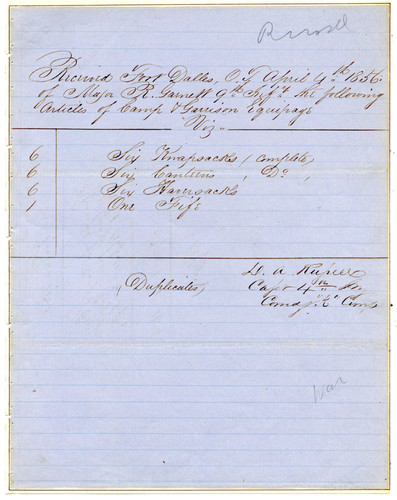 Russell
Received Fort Dalles, O.T. April 4th 1856.
of Major R. Garnett 9th Inf'y the following
Articles of Camp & Garrison Equipage
Viz
6 Six Knapsacks, complete,
6 Six Canteens, Do,
6 Six Haversacks
1 One Fife
D. A. Russell
(Duplicates) Capt 4th Inf
Comdg "K" Comp
War